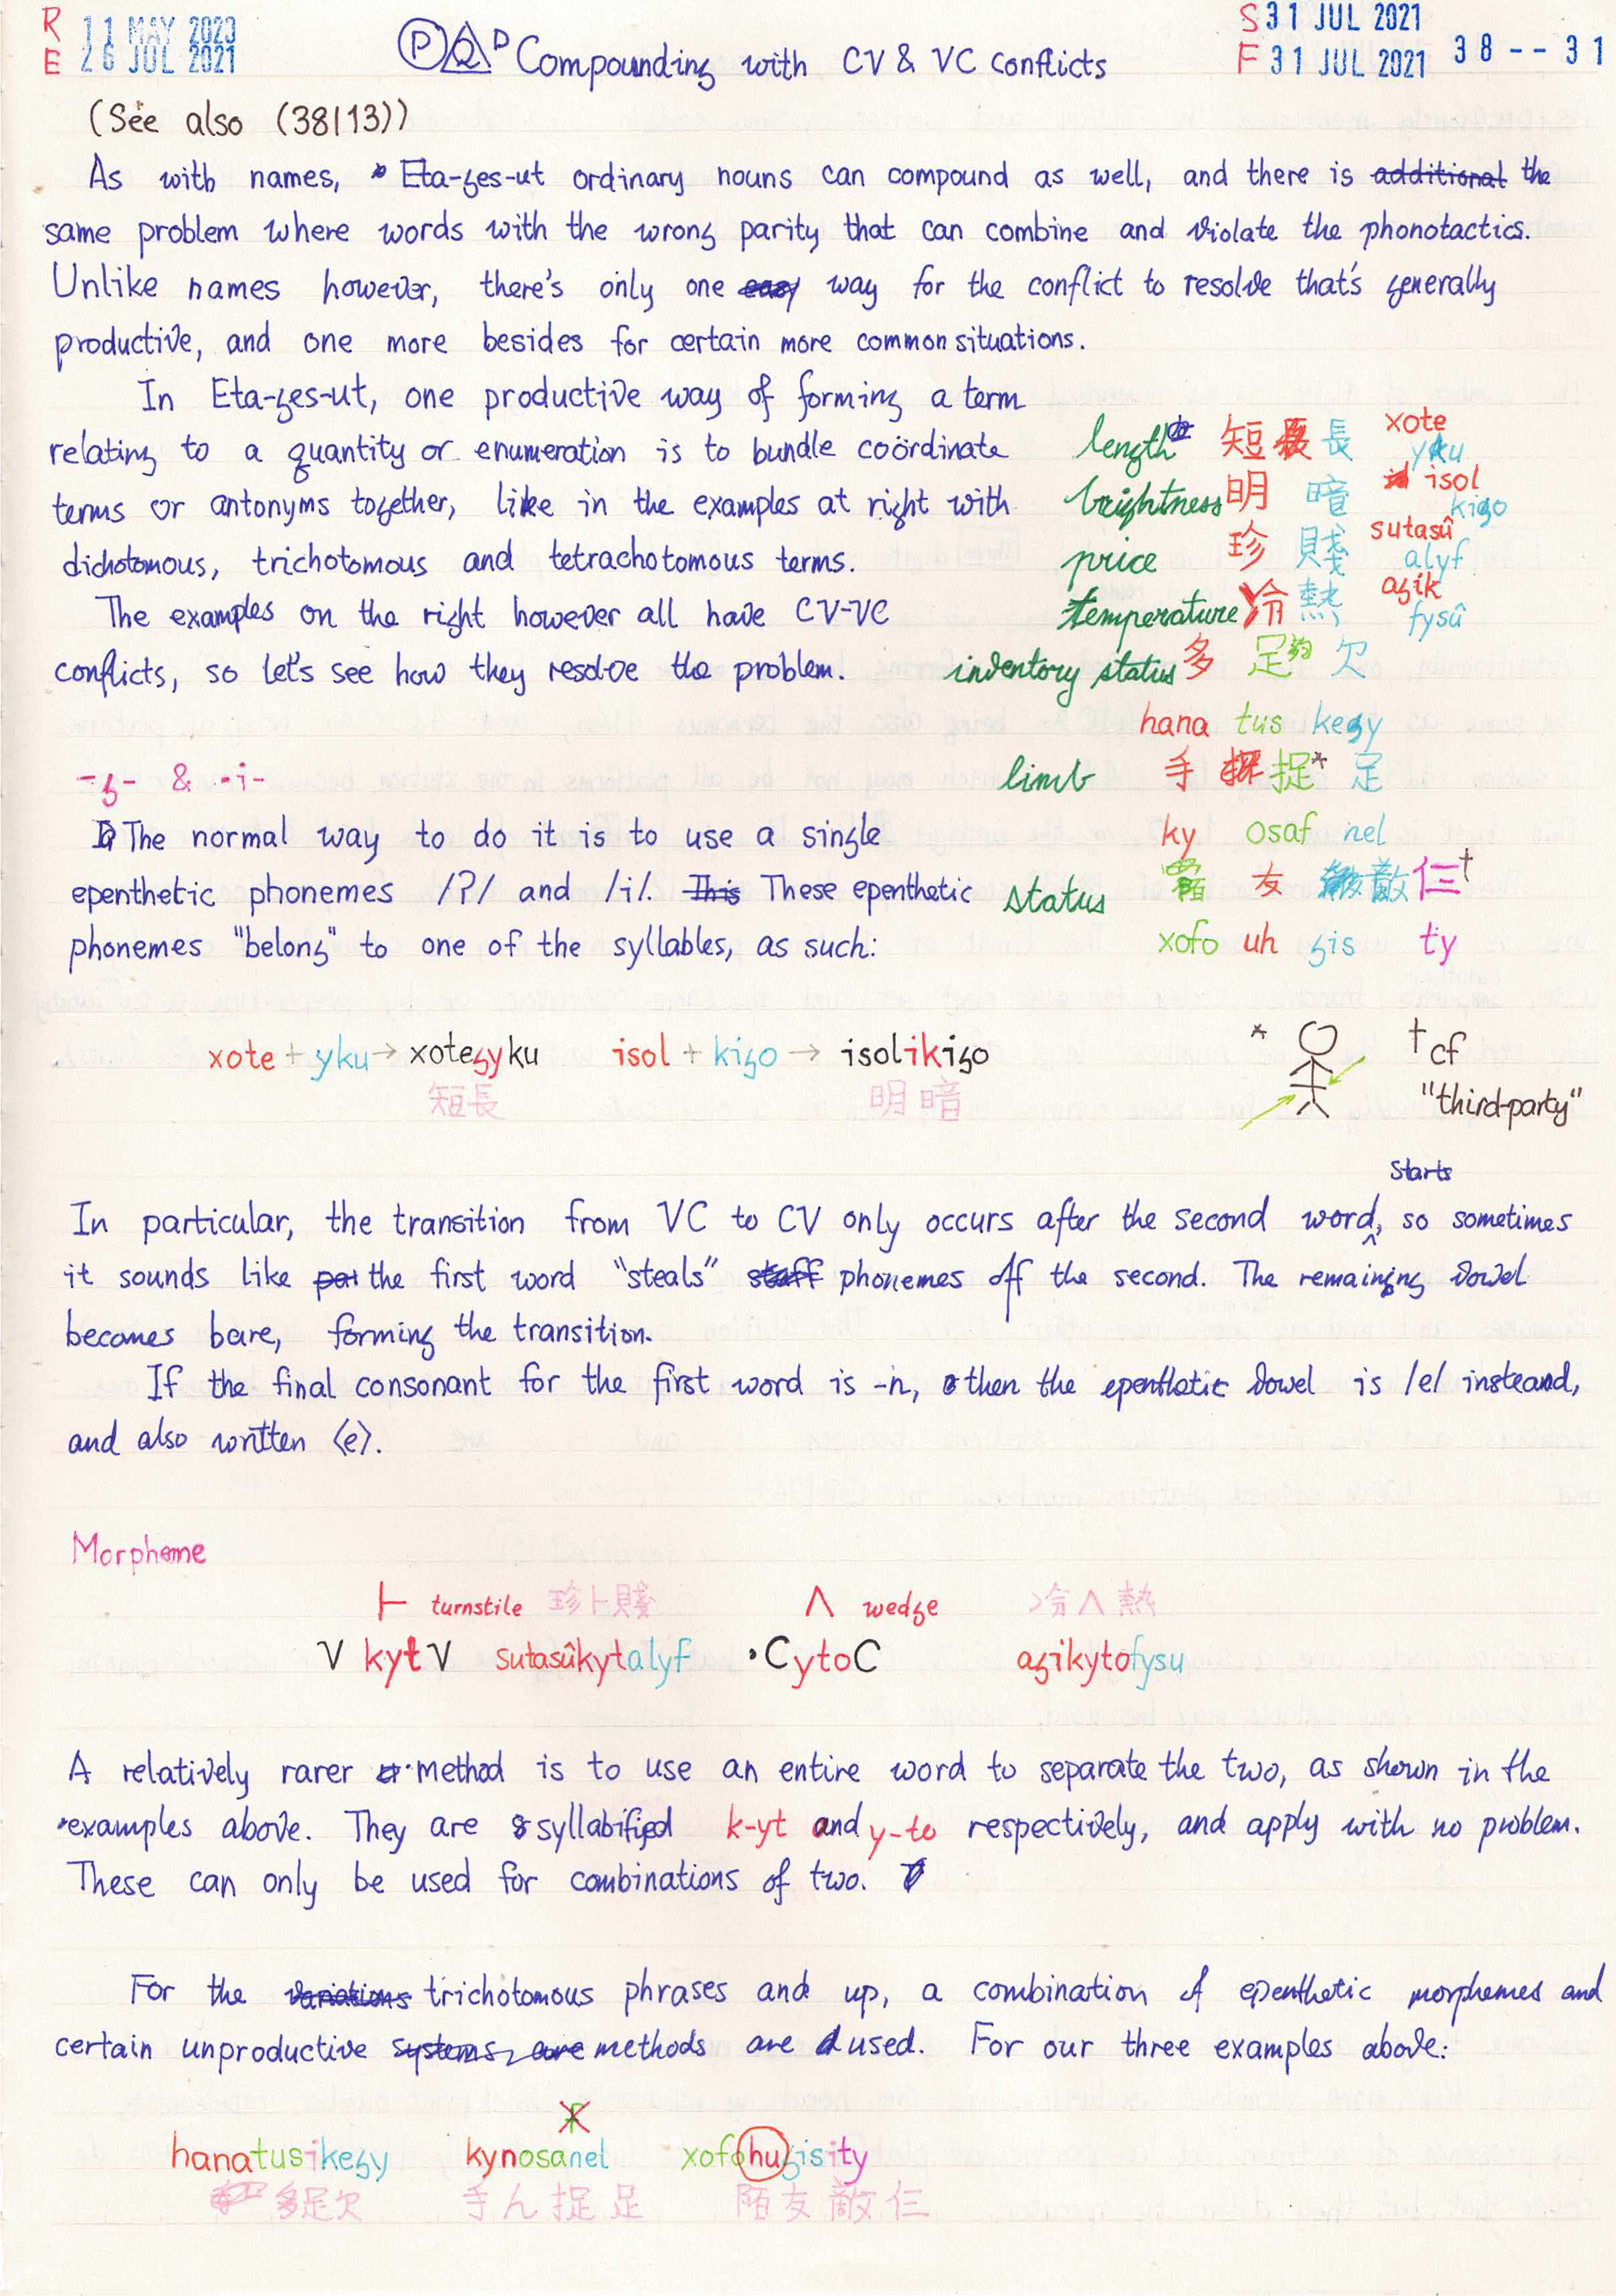 R 11 MAY 2023
E 26 JUL 2021
Compounding with CV & VC conflicts
S 31 JUL 2021
F 31 JUL 2021 38--31
(See also (38|13))
As with names, Eta-ges-ut ordinary nouns can compound as well, and there is additional the
same problem where words with the wrong parity that can combine and violate the phonotactics.
Unlike names however, there's only one easy way for the conflict to resolve that's generally
productive, and one more besides for certain more common situations.
In Eta-ges-ut, one productive way of forming a term
relating to a quantity or enumeration is to bundle coördinate
terms or antonyms together, like in the examples at right with
dichotomous, trichotomous and tetrachotomous terms.
The examples on the right however all have CV-VC
conflicts, so let's see how they resolve the problem.
length 短 長 xote yku
brightness 明 暗 isol kigo
price 珍 賤 sutasû alyf
temperature 冷 熱 agik fysû
inventory status 多 足 欠
hana tus kegy
limb 手 捉* 足
ky osaf nel
status 陌 友 敵 仁†
xofo uh gis ty
-g- & -i-
The normal way to do it is to use a single
epenthetic phonemes /ʔ/ and /i/. This These epenthetic
phonemes "belong" to one of the syllables, as such:
xote + yku → xotegyku isol + kigo → isolikigo
短長 明暗
* † cf
"third-party"
starts
In particular, the transition from VC to CV only occurs after the second word, so sometimes
it sounds like the first word "steals" staff phonemes off the second. The remaining vowel
becomes bare, forming the transition.
If the final consonant for the first word is -n, then the epenthetic vowel is /e/ instead,
and also written ⟨e⟩.
Morpheme
⊢ turnstile 珍⊢賤 ∧ wedge 冷∧熱
V kyt V sutasûkytalyf CytoC agikytofysu
A relatively rarer method is to use an entire word to separate the two, as shown in the
examples above. They are syllabified k-yt and y-to respectively, and apply with no problem.
These can only be used for combinations of two.
For the variations trichotomous phrases and up, a combination of epenthetic morphemes and
certain unproductive systems, are methods are used. For our three examples above:
f
hanatusikegy kynosanel xofohugisity
多足欠 手ん捉足 陌友敵仁